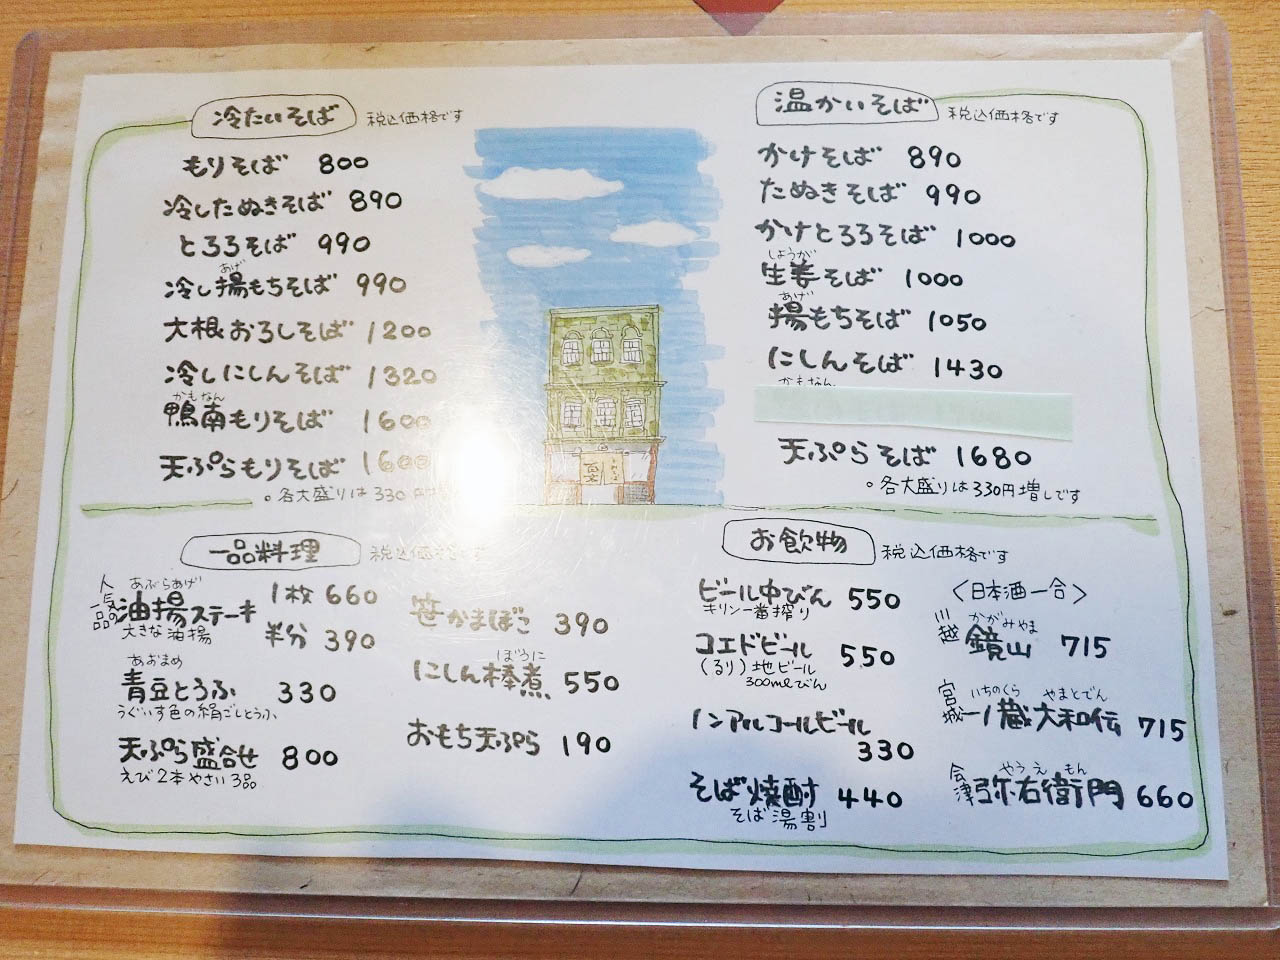 冷たいそば 税込価格です
もりそば 800
冷したぬきそば 890
とろろそば 990
あげ
冷し揚もちそば 990
大根おろしそば 1200
冷しにしんそば 1320
かもなん
鴨南もりそば 1600
天ぷらもりそば 1600
。各大盛りは330円増
温かいそば 税込価格です
かけそば 890
たぬきそば 990
かけとろろそば 1000
しょうが
生姜そば 1000
あげ
揚もちそば 1050
にしんそば 1430
かもなん
天ぷらそば 1680
。各大盛りは330円増しです
一品料理 税込価格です
人気の一品
あぶらあげ
油揚ステーキ 1枚 660
大きな油揚 半分 390
あおまめ
青豆とうふ 330
うぐいす色の絹ごしとうふ
天ぷら盛合せ 800
えび2本やさい3品
笹かまぼこ 390
ぼうに
にしん棒煮 550
おもち天ぷら 190
お飲物 税込価格です
ビール中びん 550
キリン一番搾り
コエドビール 550
(るり)地ビール
300mlびん
ノンアルコールビール
330
そば焼酎 440
そば湯割
<日本酒一合>
かがみやま
川越 鏡山 715
いちのくら やまとでん
宮城 一ノ蔵大和伝 715
やうえもん
会津 弥右衛門 660